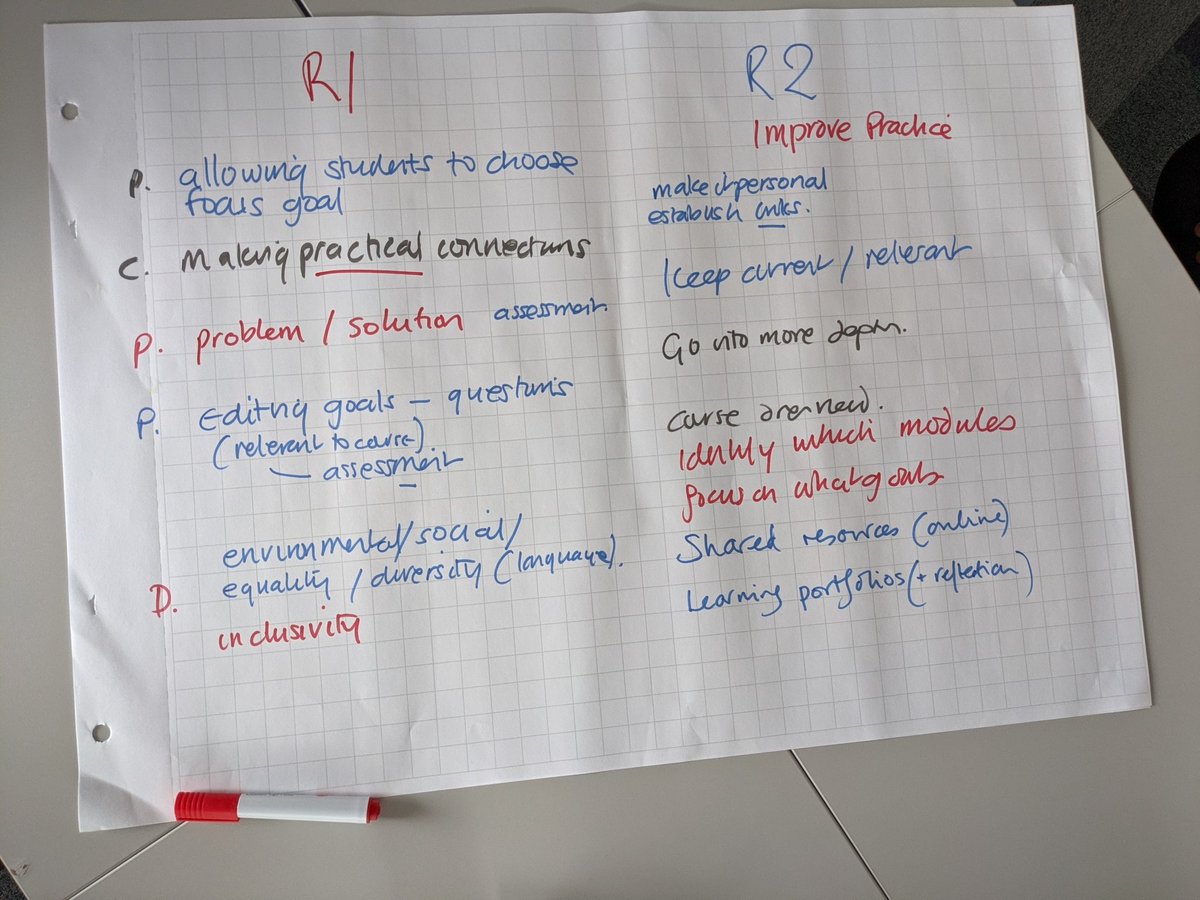 R1
P. allowing students to choose
focus goal
C. Making practical connections
P. problem / solution assessment
P. Editing goals – questions
(relevant to course)
assessment
environmental/social/
equality / diversity (language).
D.
inclusivity
R2
Improve Practice
make it personal
establish links.
Keep current / relevant
Go into more depth.
course overview.
Identify which modules
focus on what goals
Shared resources (online)
Learning portfolios (+ reflection)